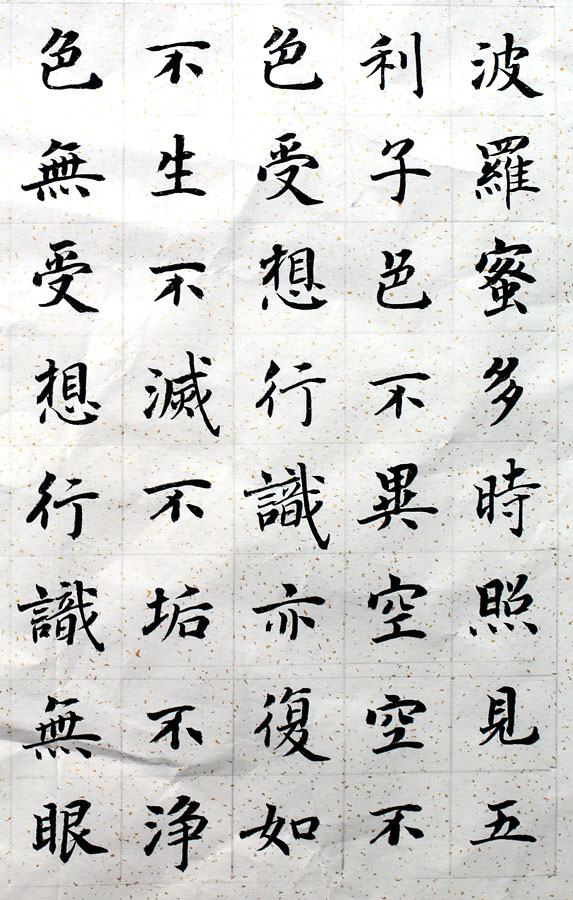 波羅蜜多時照見五
利子色不異空空不
色受想行識亦復如
不生不滅不垢不浄
色無受想行識無眼